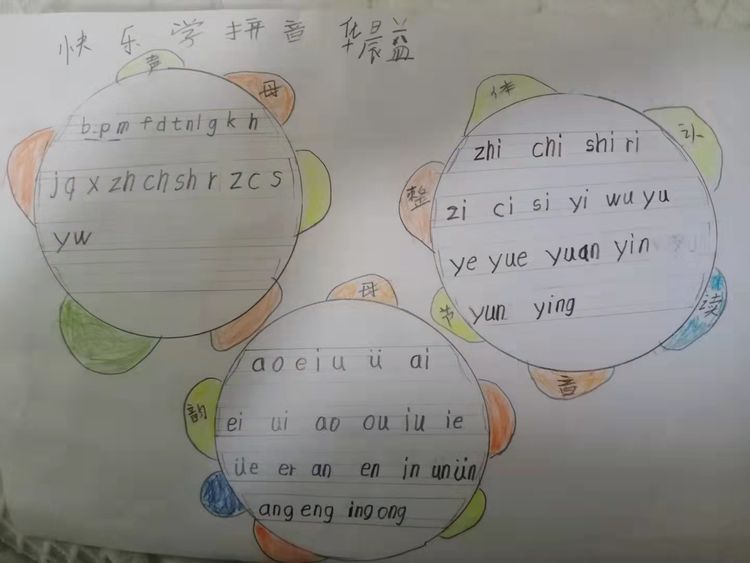 快乐学拼音 华晨益
声母
b p m f d t n l g k h
j q x zh ch sh r z c s
y w
整体认读音节
zhi chi shi ri
zi ci si yi wu yu
ye yue yuan yin
yun ying
韵母
a o e i u ü ai
ei ui ao ou iu ie
üe er an en in un ün
ang eng ing ong